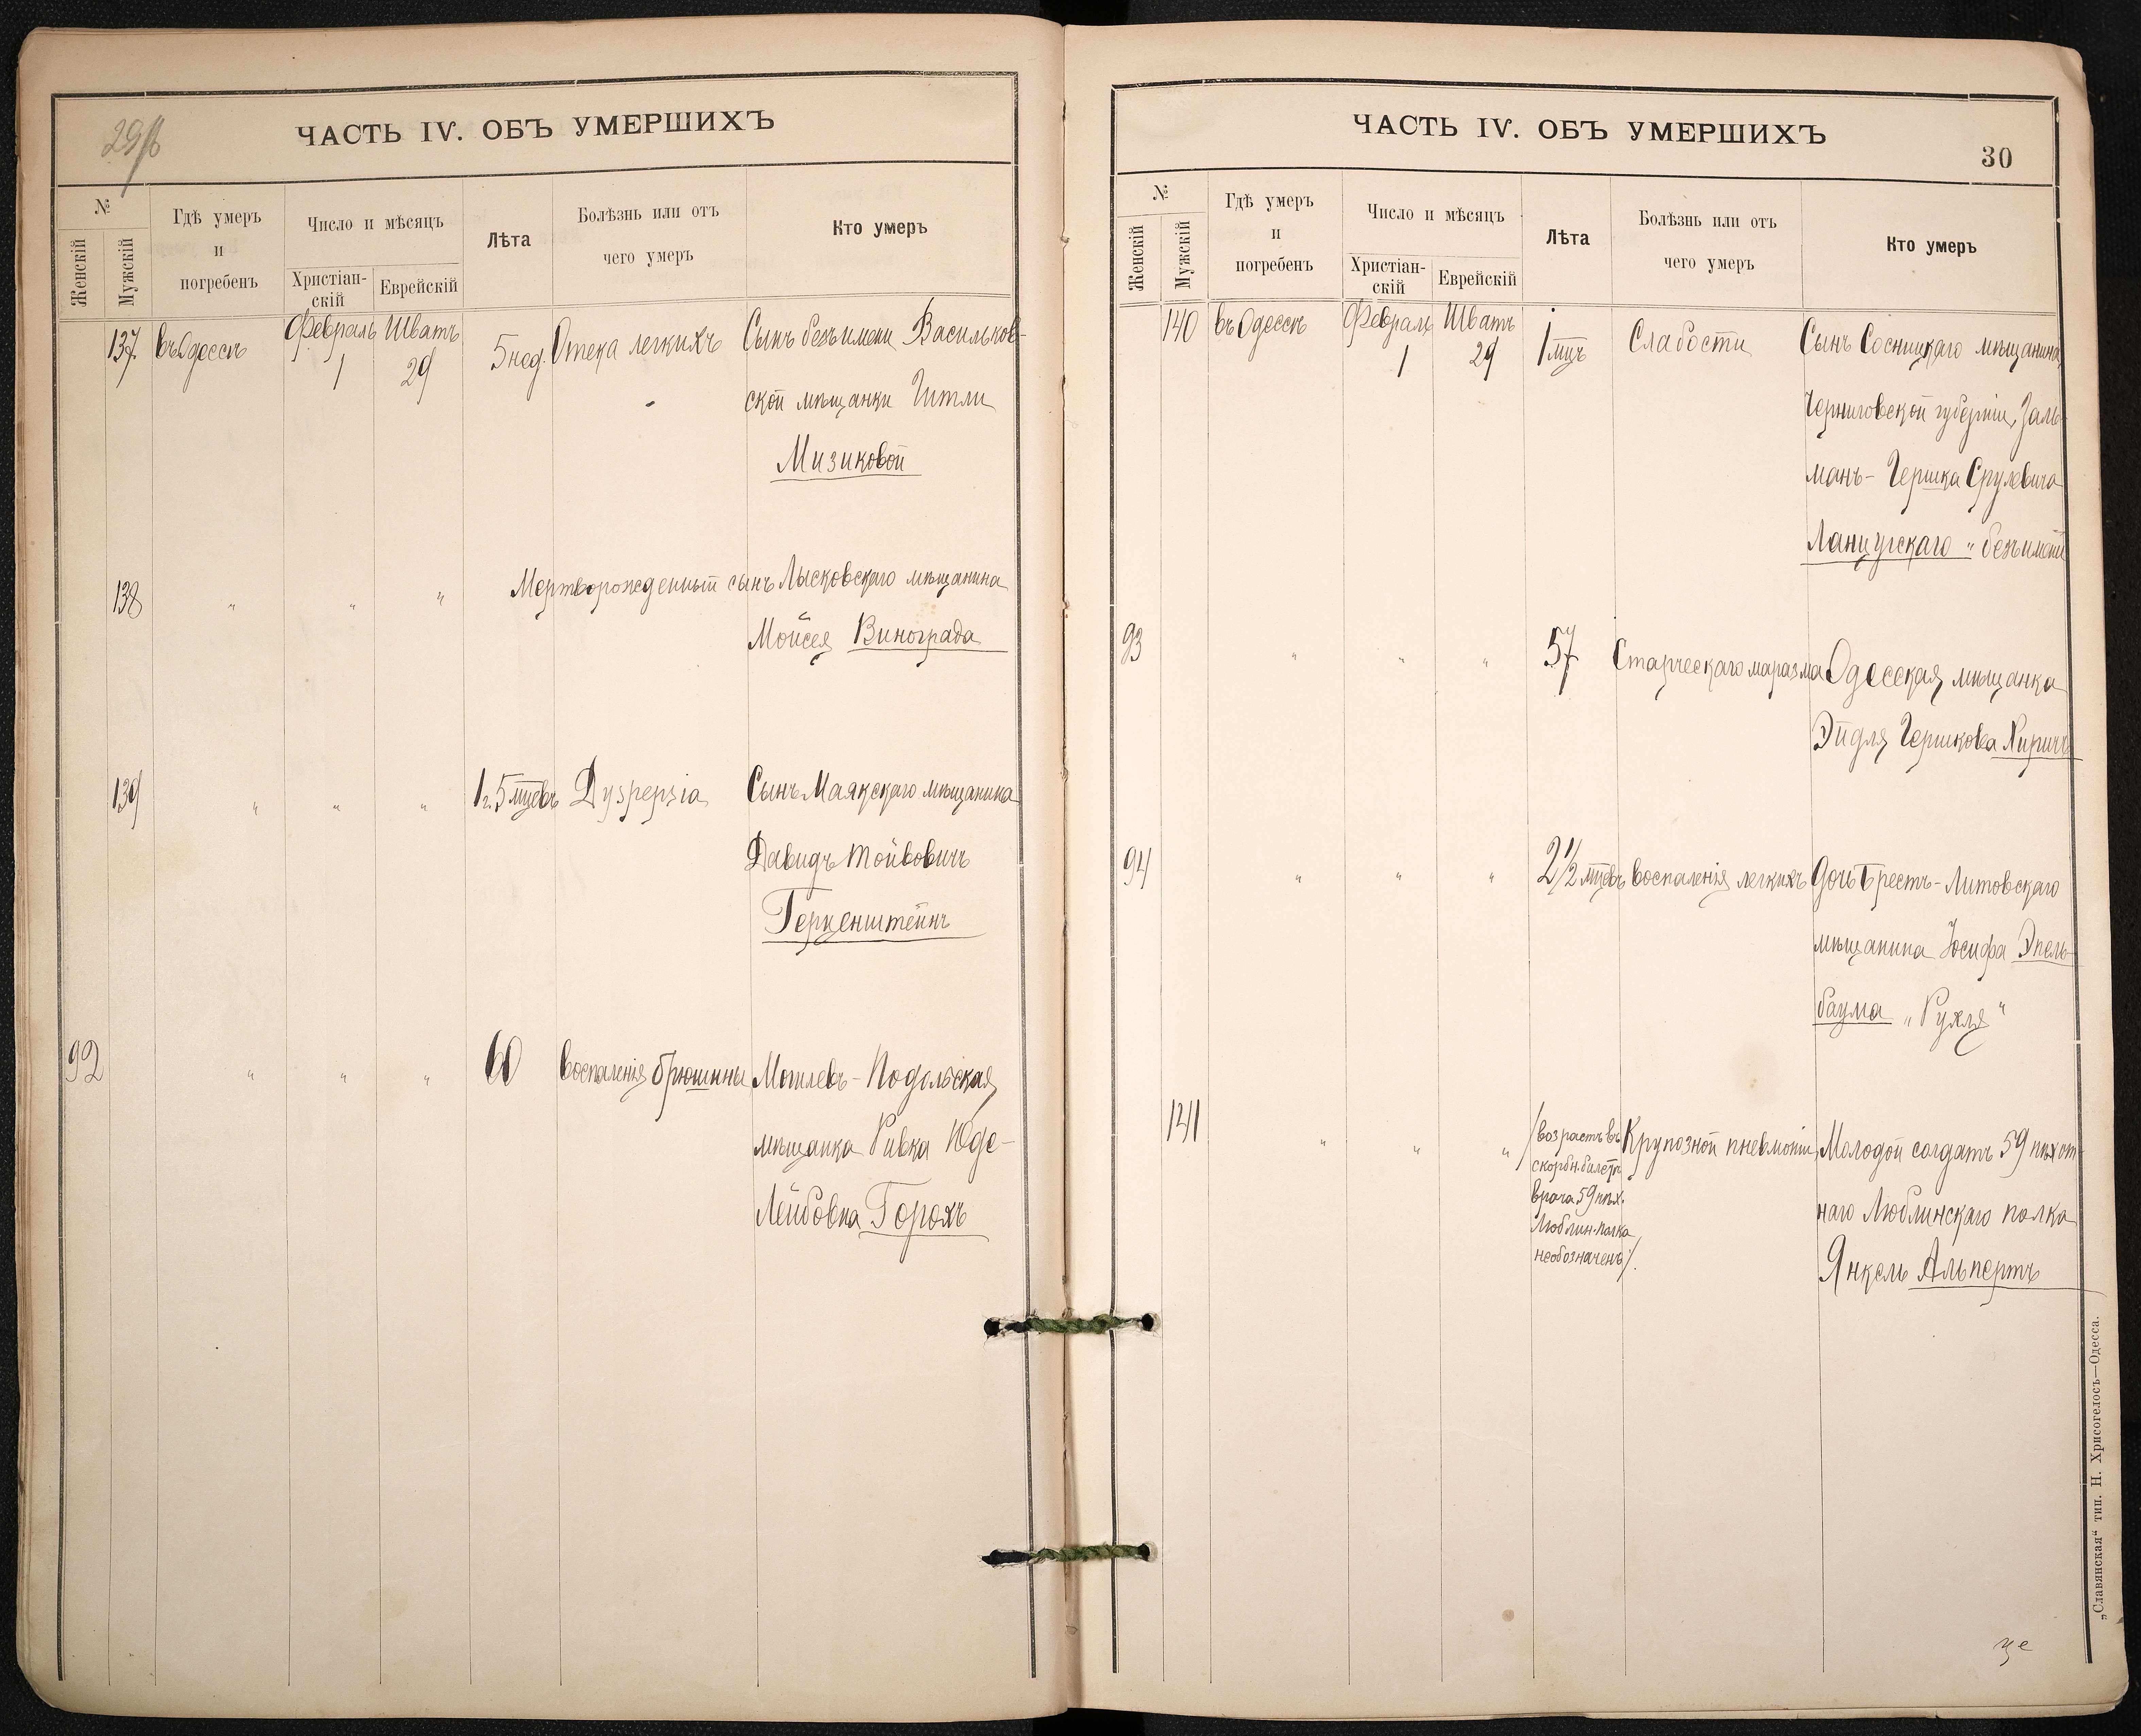 29/б
ЧАСТЬ IV. ОБЪ УМЕРШИХЪ
№
Женскій
Мужскій
Гдѣ умеръ
и
погребенъ
Число и мѣсяцъ
Христіан-
скій
Еврейскій
Лѣта
Болѣзнь или отъ
чего умеръ
Кто умеръ
137 въ Одессѣ Февраль Шватъ 5 нед. Отека легкихъ Сынъ безъ имени Васильков-
1 29
ской мѣщанки Гитли
Мизиковой
138 " " " Мертворожденный сынъ Лысковскаго мѣщанина
Мойсея Винограда
139 " " " 1 г. 5 мцевъ Dyspepsia Сынъ Маякскаго мѣщанина
Давидъ Тойвовичъ
Герценштейнъ
92 " " " 60 воспаленія брюшины Могилевъ-Подольская
мѣщанка Ривка Юде-
Лейбовна Горохъ
ЧАСТЬ IV. ОБЪ УМЕРШИХЪ
30
№
Женскій
Мужскій
Гдѣ умеръ
и
погребенъ
Число и мѣсяцъ
Христіан-
скій
Еврейскій
Лѣта
Болѣзнь или отъ
чего умеръ
Кто умеръ
140 въ Одессѣ Февраль Шватъ 1 мцъ Слабости Сынъ Сосницкаго мѣщанина
1 29
Черниговской губерніи, Заль-
манъ-Гершка Срулевича
Ланцугскаго "безъ имени
93 " " " 57 Старческаго маразма Одесская мѣщанка
Эйдля Гершкова Киричъ
94 " " " 2 1/2 мцевъ воспаленія легкихъ Дочь Брестъ-Литовскаго
мѣщанина Іосифа Эпель-
баума „Рухля"
141 " " " /возрастъ въ Крупозной пневмоніи Молодой солдатъ 59 пѣхот-
скорбн. билетѣ
врача 59 пѣх.
Люблин. полка
необозначенъ/.
наго Люблинскаго полка
Янкель Альпертъ
„Славянская“ тип. Н. Хрисогелосъ—Одесса.